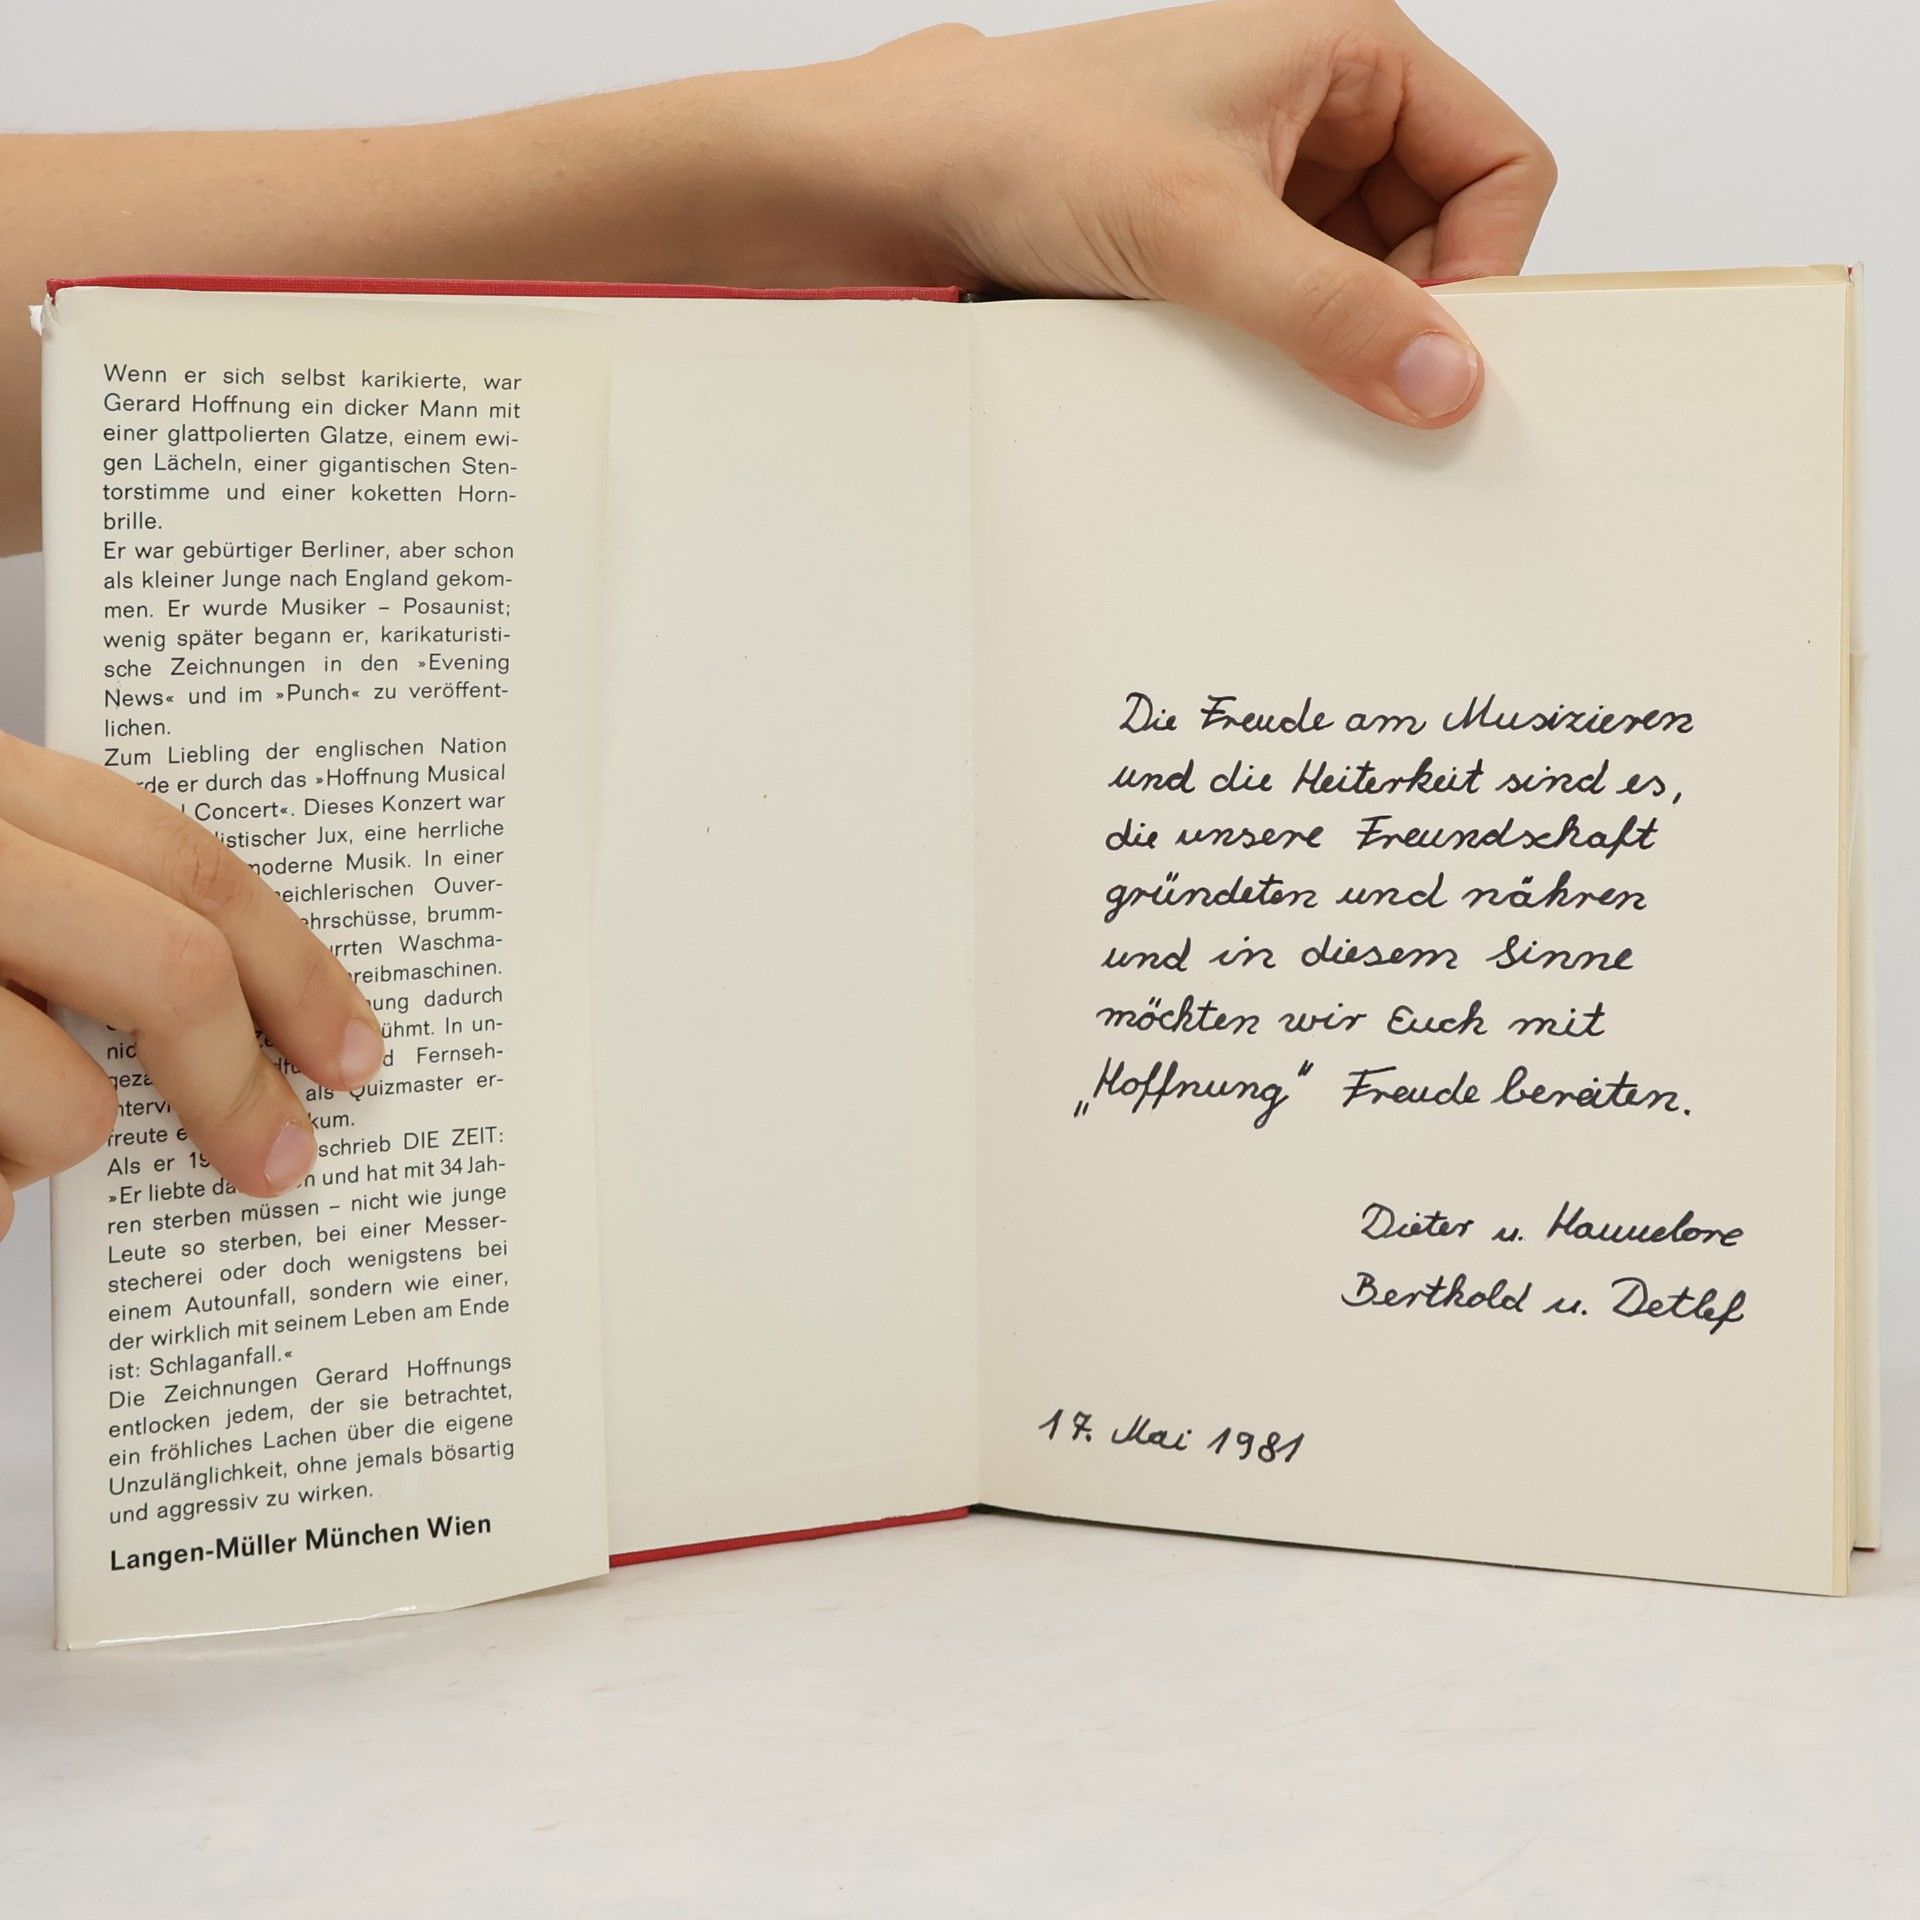 Wenn er sich selbst karikierte, war
Gerard Hoffnung ein dicker Mann mit
einer glattpolierten Glatze, einem ewi-
gen Lächeln, einer gigantischen Sten-
torstimme und einer koketten Horn-
brille.
Er war gebürtiger Berliner, aber schon
als kleiner Junge nach England gekom-
men. Er wurde Musiker – Posaunist;
wenig später begann er, karikaturisti-
sche Zeichnungen in den »Evening
News« und im »Punch« zu veröffent-
lichen.
Zum Liebling der englischen Nation
er durch das »Hoffnung Musical
Concert«. Dieses Konzert war
Jux, eine herrliche
moderne Musik. In einer
Ouver-
brumm-
Waschma-
dadurch
In un-
Fernseh-
als Quizmaster er-
freute
Als er schrieb DIE ZEIT:
»Er liebte und hat mit 34 Jah-
ren sterben müssen – nicht wie junge
Leute so sterben, bei einer Messer-
stecherei oder doch wenigstens bei
einem Autounfall, sondern wie einer,
der wirklich mit seinem Leben am Ende
ist: Schlaganfall.«
Die Zeichnungen Gerard Hoffnungs
entlocken jedem, der sie betrachtet,
ein fröhliches Lachen über die eigene
Unzulänglichkeit, ohne jemals bösartig
und aggressiv zu wirken.
Langen-Müller München Wien
Die Freude am Musizieren
und die Heiterkeit sind es,
die unsere Freundschaft
gründeten und nähren
und in diesem Sinne
möchten wir Euch mit
„Hoffnung" Freude bereiten.
Dieter u. Hannelore
Berthold u. Detlef
17. Mai 1981